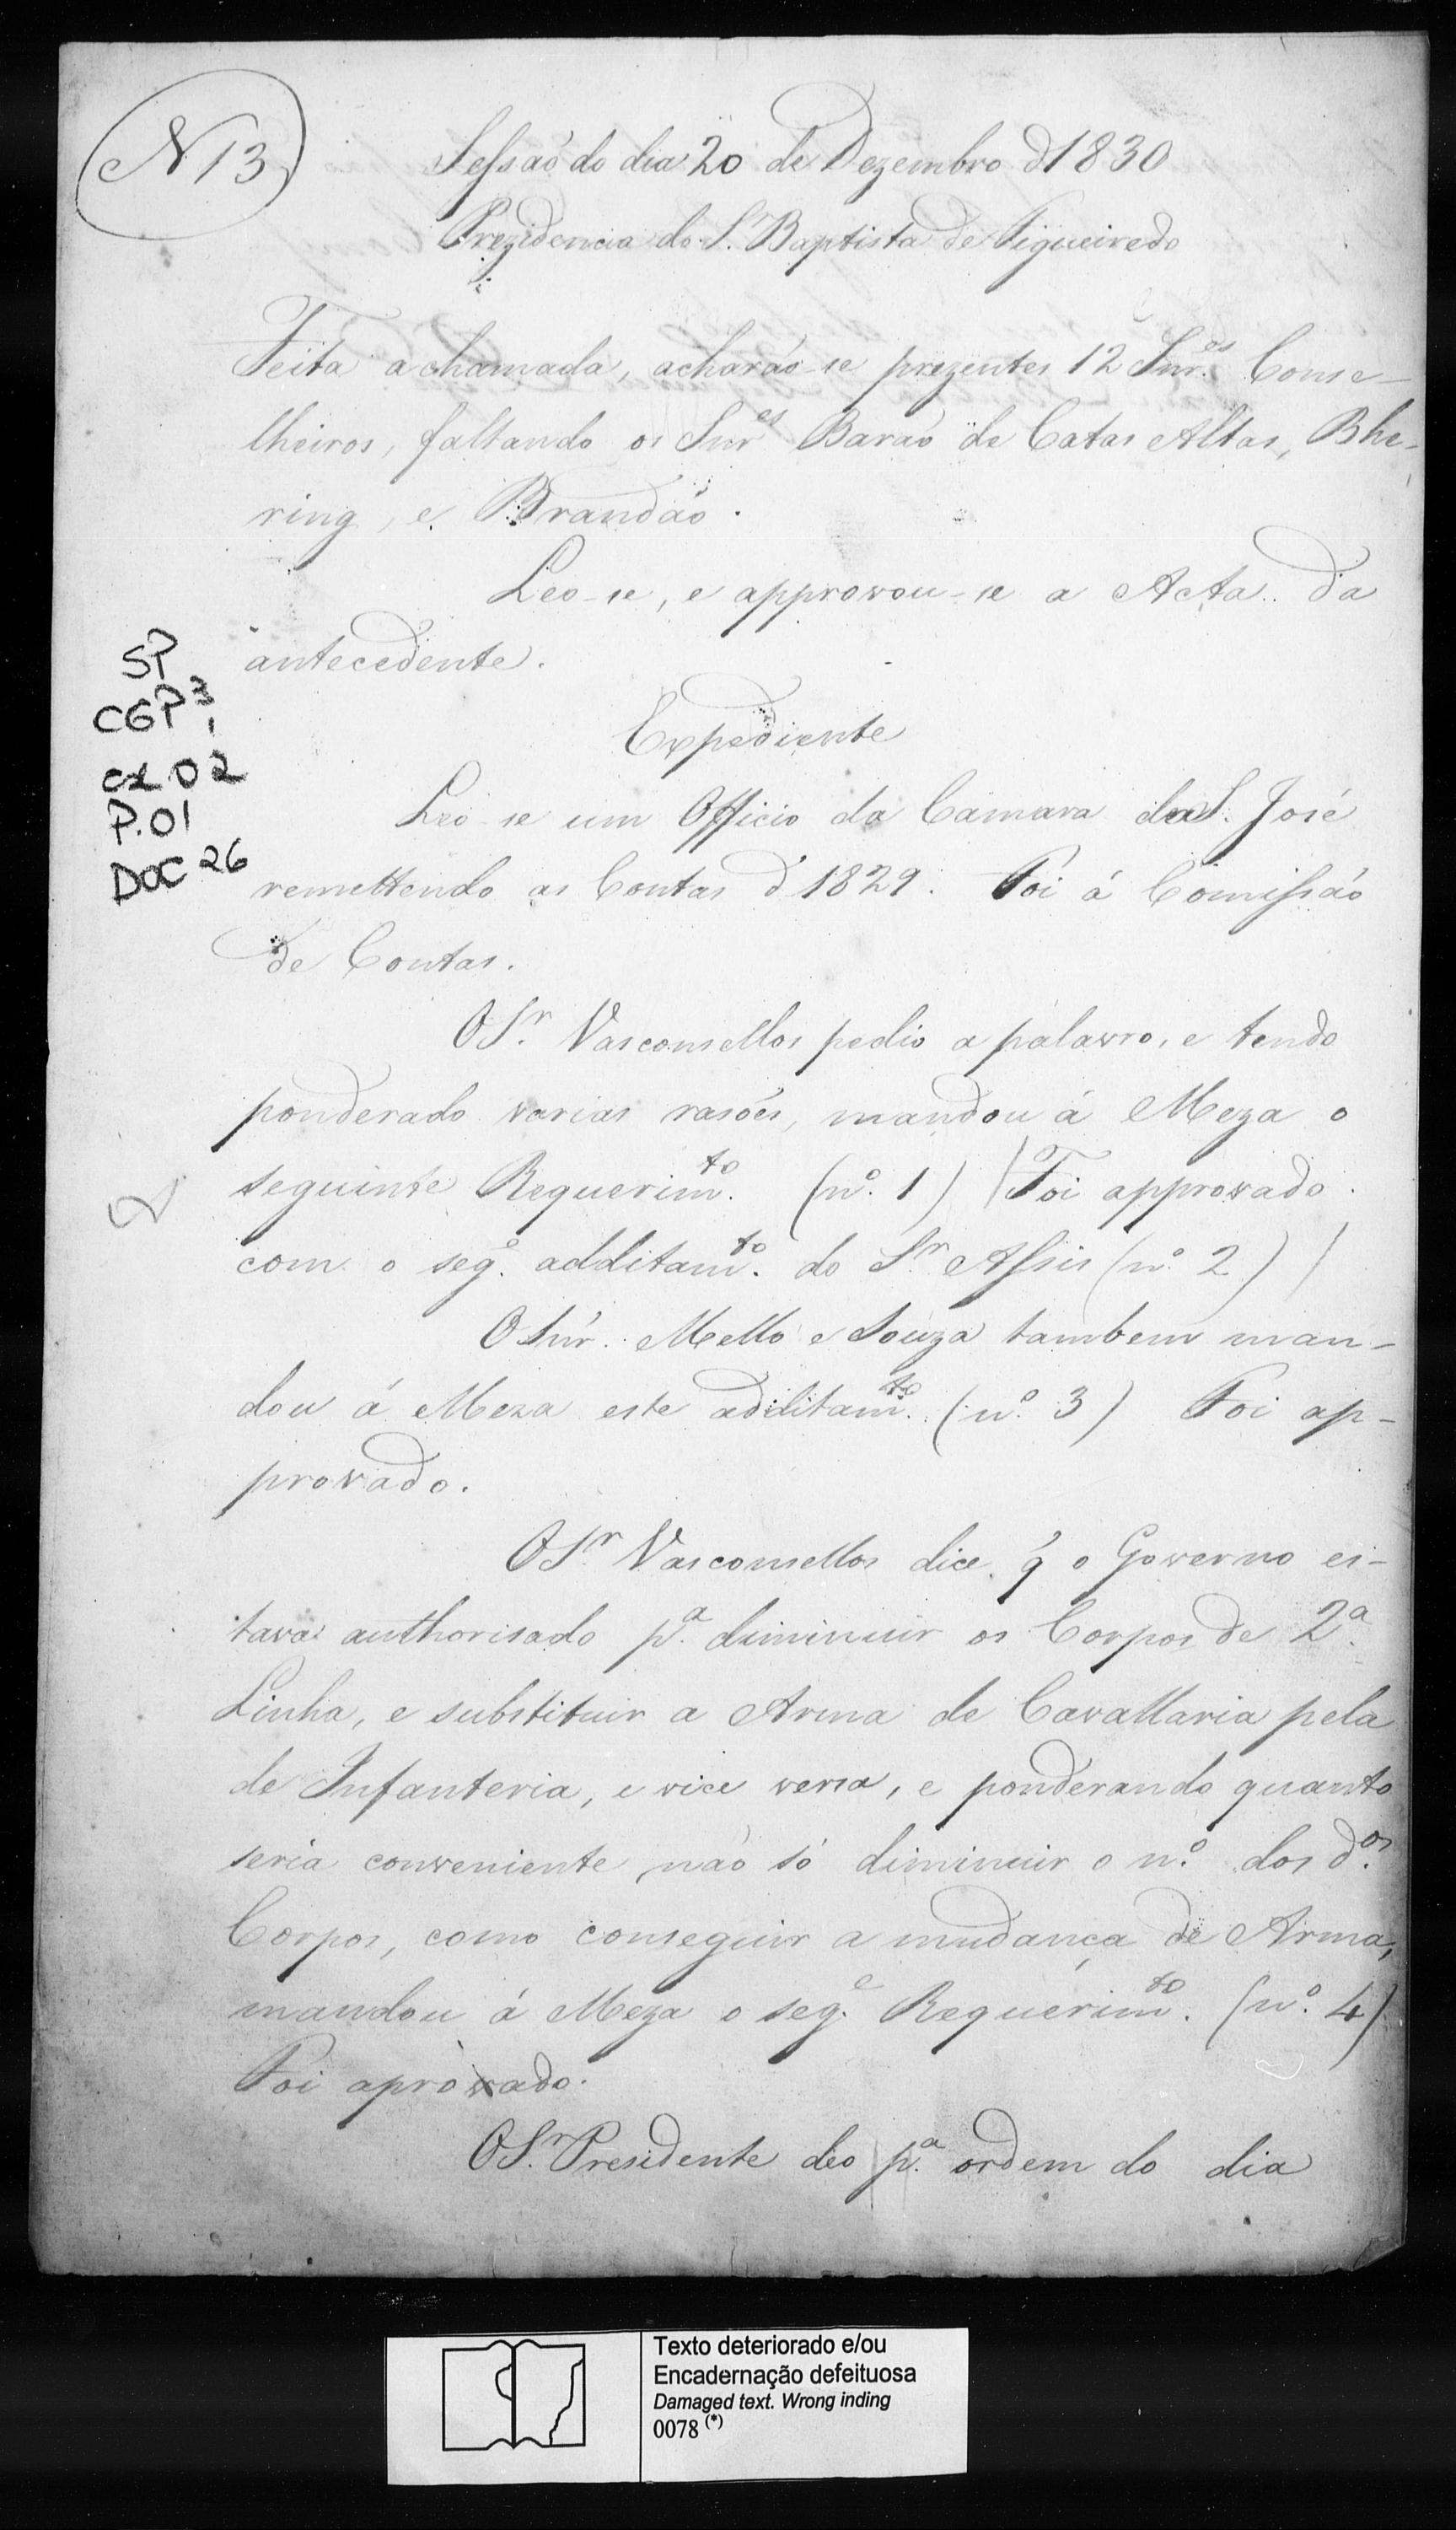 N 13
Sessaõ do dia 20 de Dezembro d'1830
Prezidencia do S.r Baptista de Figueiredo
Feita a chamada, acharão-se prezentes 12 Snr.es Conse-
lheiros, faltando os Snr.es Barão de Catas Altas, Bhe-
ring, e Brandão.
Leo-se, e approvou-se a Acta da
antecedente.
Expediente
SP
CGP 3,
cx 02
P.01
DOC 26
Leo-se um Officio da Camara de S. José
remettendo as Contas d'1829. Foi á Comissão
de Contas.
O S.r Vasconsellos pedio a palavra, e tendo
ponderado varias rasões, mandou á Meza o
seguinte Requerim.to (n.º 1) / Foi approvado
com o seg.e additam.to do S.r Assis (n.º 2) /
O Snr. Mello e Souza tambem man-
dou á Meza este additam.to (n.º 3) Foi ap-
provado.
O S.r Vasconsellos dice q̃ o Governo es-
tava authorisado p.a diminuir os Corpos de 2.a
Linha, e substituir a Arma de Cavallaria pela
de Infanteria, e vice versa, e ponderando quanto
seria conveniente não só diminuir o n.º dos d.os
Corpos, como conseguir a mudança de Arma,
mandou á Meza o seg.e Requerim.to (n.º 4)
Foi aprovado.
O S.r Presidente deo p.a ordem do dia
Texto deteriorado e/ou
Encadernação defeituosa
Damaged text. Wrong inding
0078 (*)